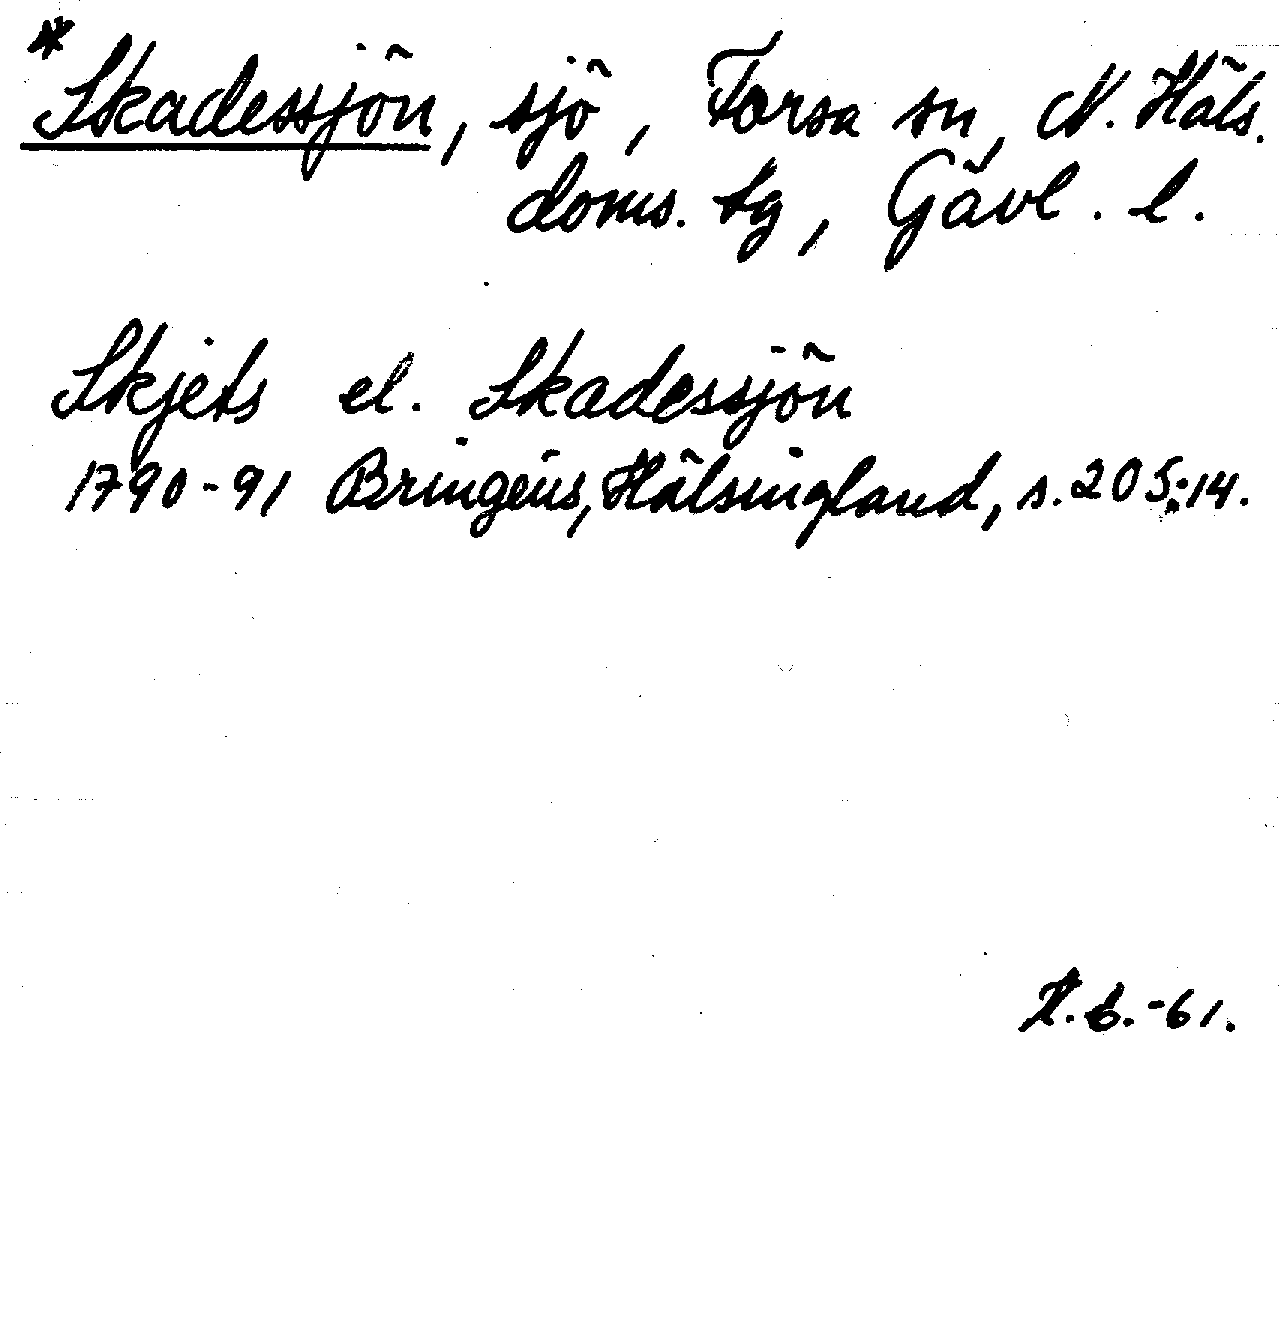 *Skadessjön, sjö, Forsa sn, N. Häls.
doms. tg, Gävl. l.
Skjets el. Skadessjön
1790-91 Bringéus, Hälsingland, s. 205:14.
-61.